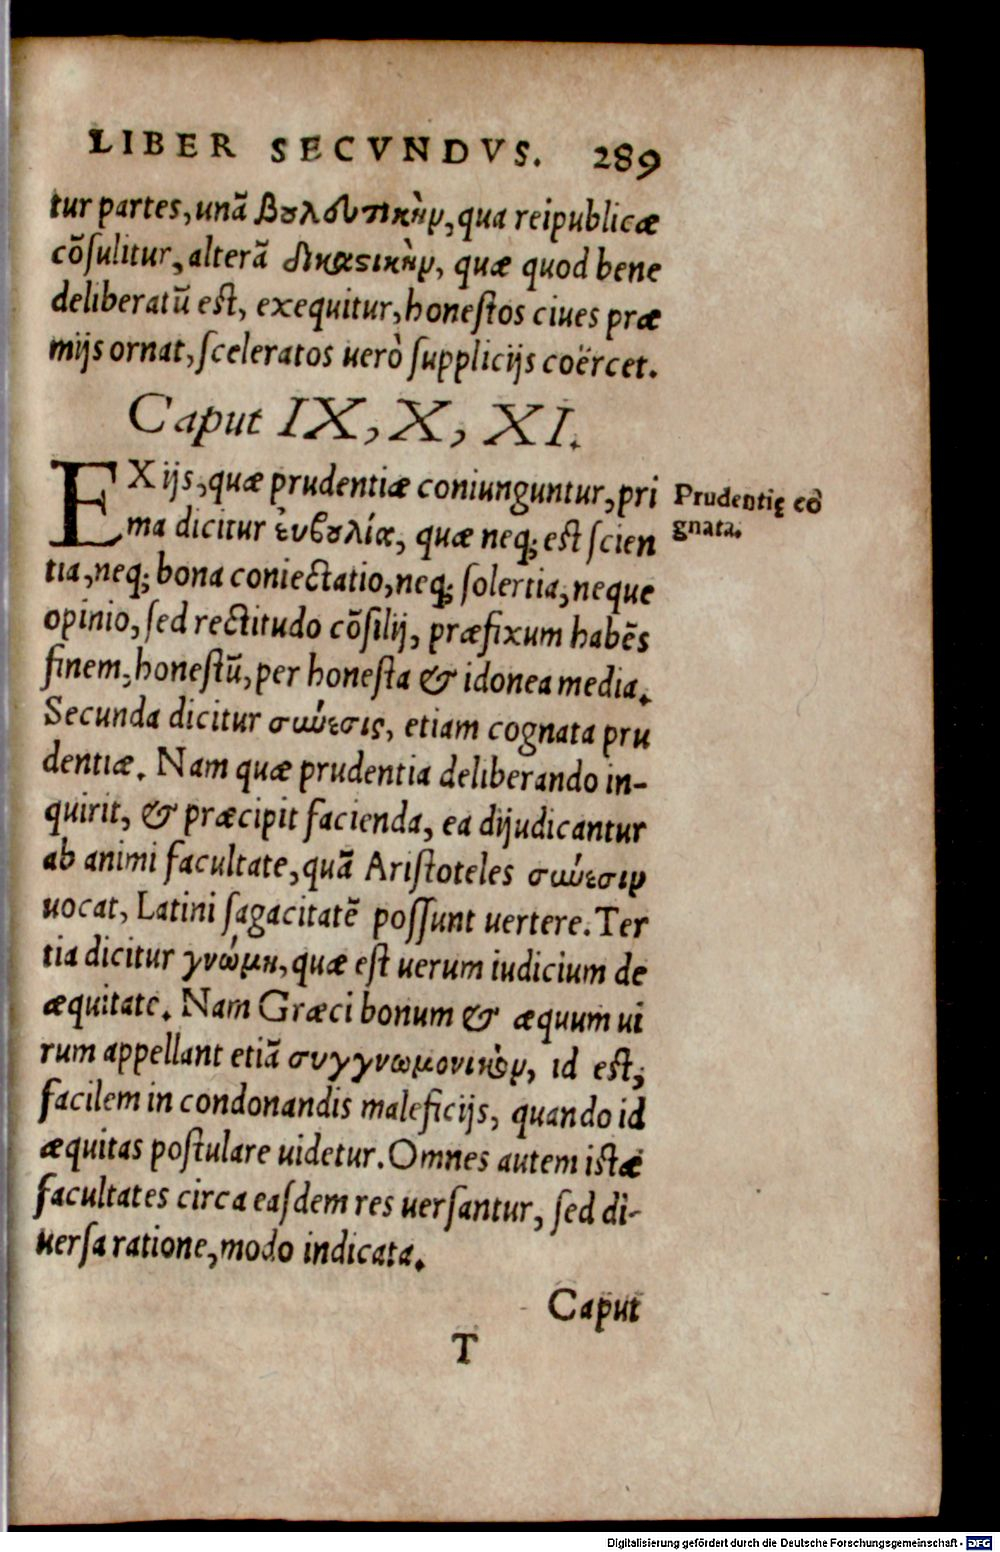 LIBER SECVNDVS. 289
tur partes, unã βουλευτικὴν, qua reipublicæ
cõsulitur, alterã δικαστικὴν, quæ quod bene
deliberatũ est, exequitur, honestos ciues præ
mijs ornat, sceleratos uerò supplicijs coërcet.
Caput IX, X, XI.
EX ijs, quæ prudentiæ coniunguntur, pri
ma dicitur ἐυβουλία, quæ neq; est scien
tia, neq; bona coniectatio, neq; solertia, neque
opinio, sed rectitudo cõsilij, præfixum habẽs
finem, honestũ, per honesta & idonea media.
Secunda dicitur σωύεσις, etiam cognata pru
dentiæ. Nam quæ prudentia deliberando in-
quirit, & præcipit facienda, ea dijudicantur
ab animi facultate, quã Aristoteles σωύεσιν
uocat, Latini sagacitatẽ possunt uertere. Ter
tia dicitur γνώμη, quæ est uerum iudicium de
æquitate. Nam Græci bonum & æquum ui
rum appellant etiã συγγνωμονικὸν, id est,
facilem in condonandis maleficijs, quando id
æquitas postulare uidetur. Omnes autem istæ
facultates circa easdem res uersantur, sed di-
uersa ratione, modo indicata.
Prudentię cõ
gnata.
Caput
T
Digitalisierung gefördert durch die Deutsche Forschungsgemeinschaft - DFG